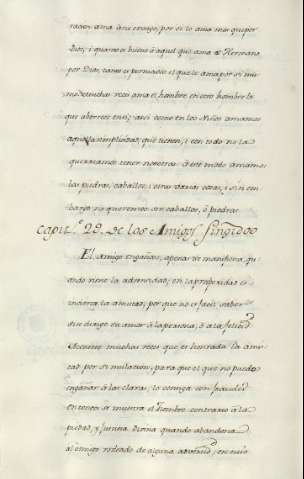 ama à su enemigo, por si lo ama mas que por
Dios; i quanto es bueno ô aquel que ama al Hermano
por Dios, tanto es perverso el que lo ama por si mis-
mo. Muchas veces ama el hombre en otro hombre lo
que aborrece en si; assi como en los Niños amamos
aquella simplicidad, que tienen; i con todo no la
quisieramos tener nosotros: à este modo amamos
las piedras, caballos, i otras varias cosas, i sin em-
bargo no queremos ser caballos, ò piedras.
Capit.º 29. De los Amigos fingidos
El amigo engañoso, apenas se manifiesta, qu-
ando viene la adversidad; en la prosperidad es
incierta la amistad, por que no es facil saber
si se dirige su amor à la persona, ò a la felicid.
Acontece muchas veces que es honrada la amis-
tad por simulacion, para que el que no puede
engañar à las claras, lo consiga con fraudes
entonces se muestra el hombre contrario à la
piedad, y Justicia Divina quando abandona
al amigo rodeado de alguna adversid.